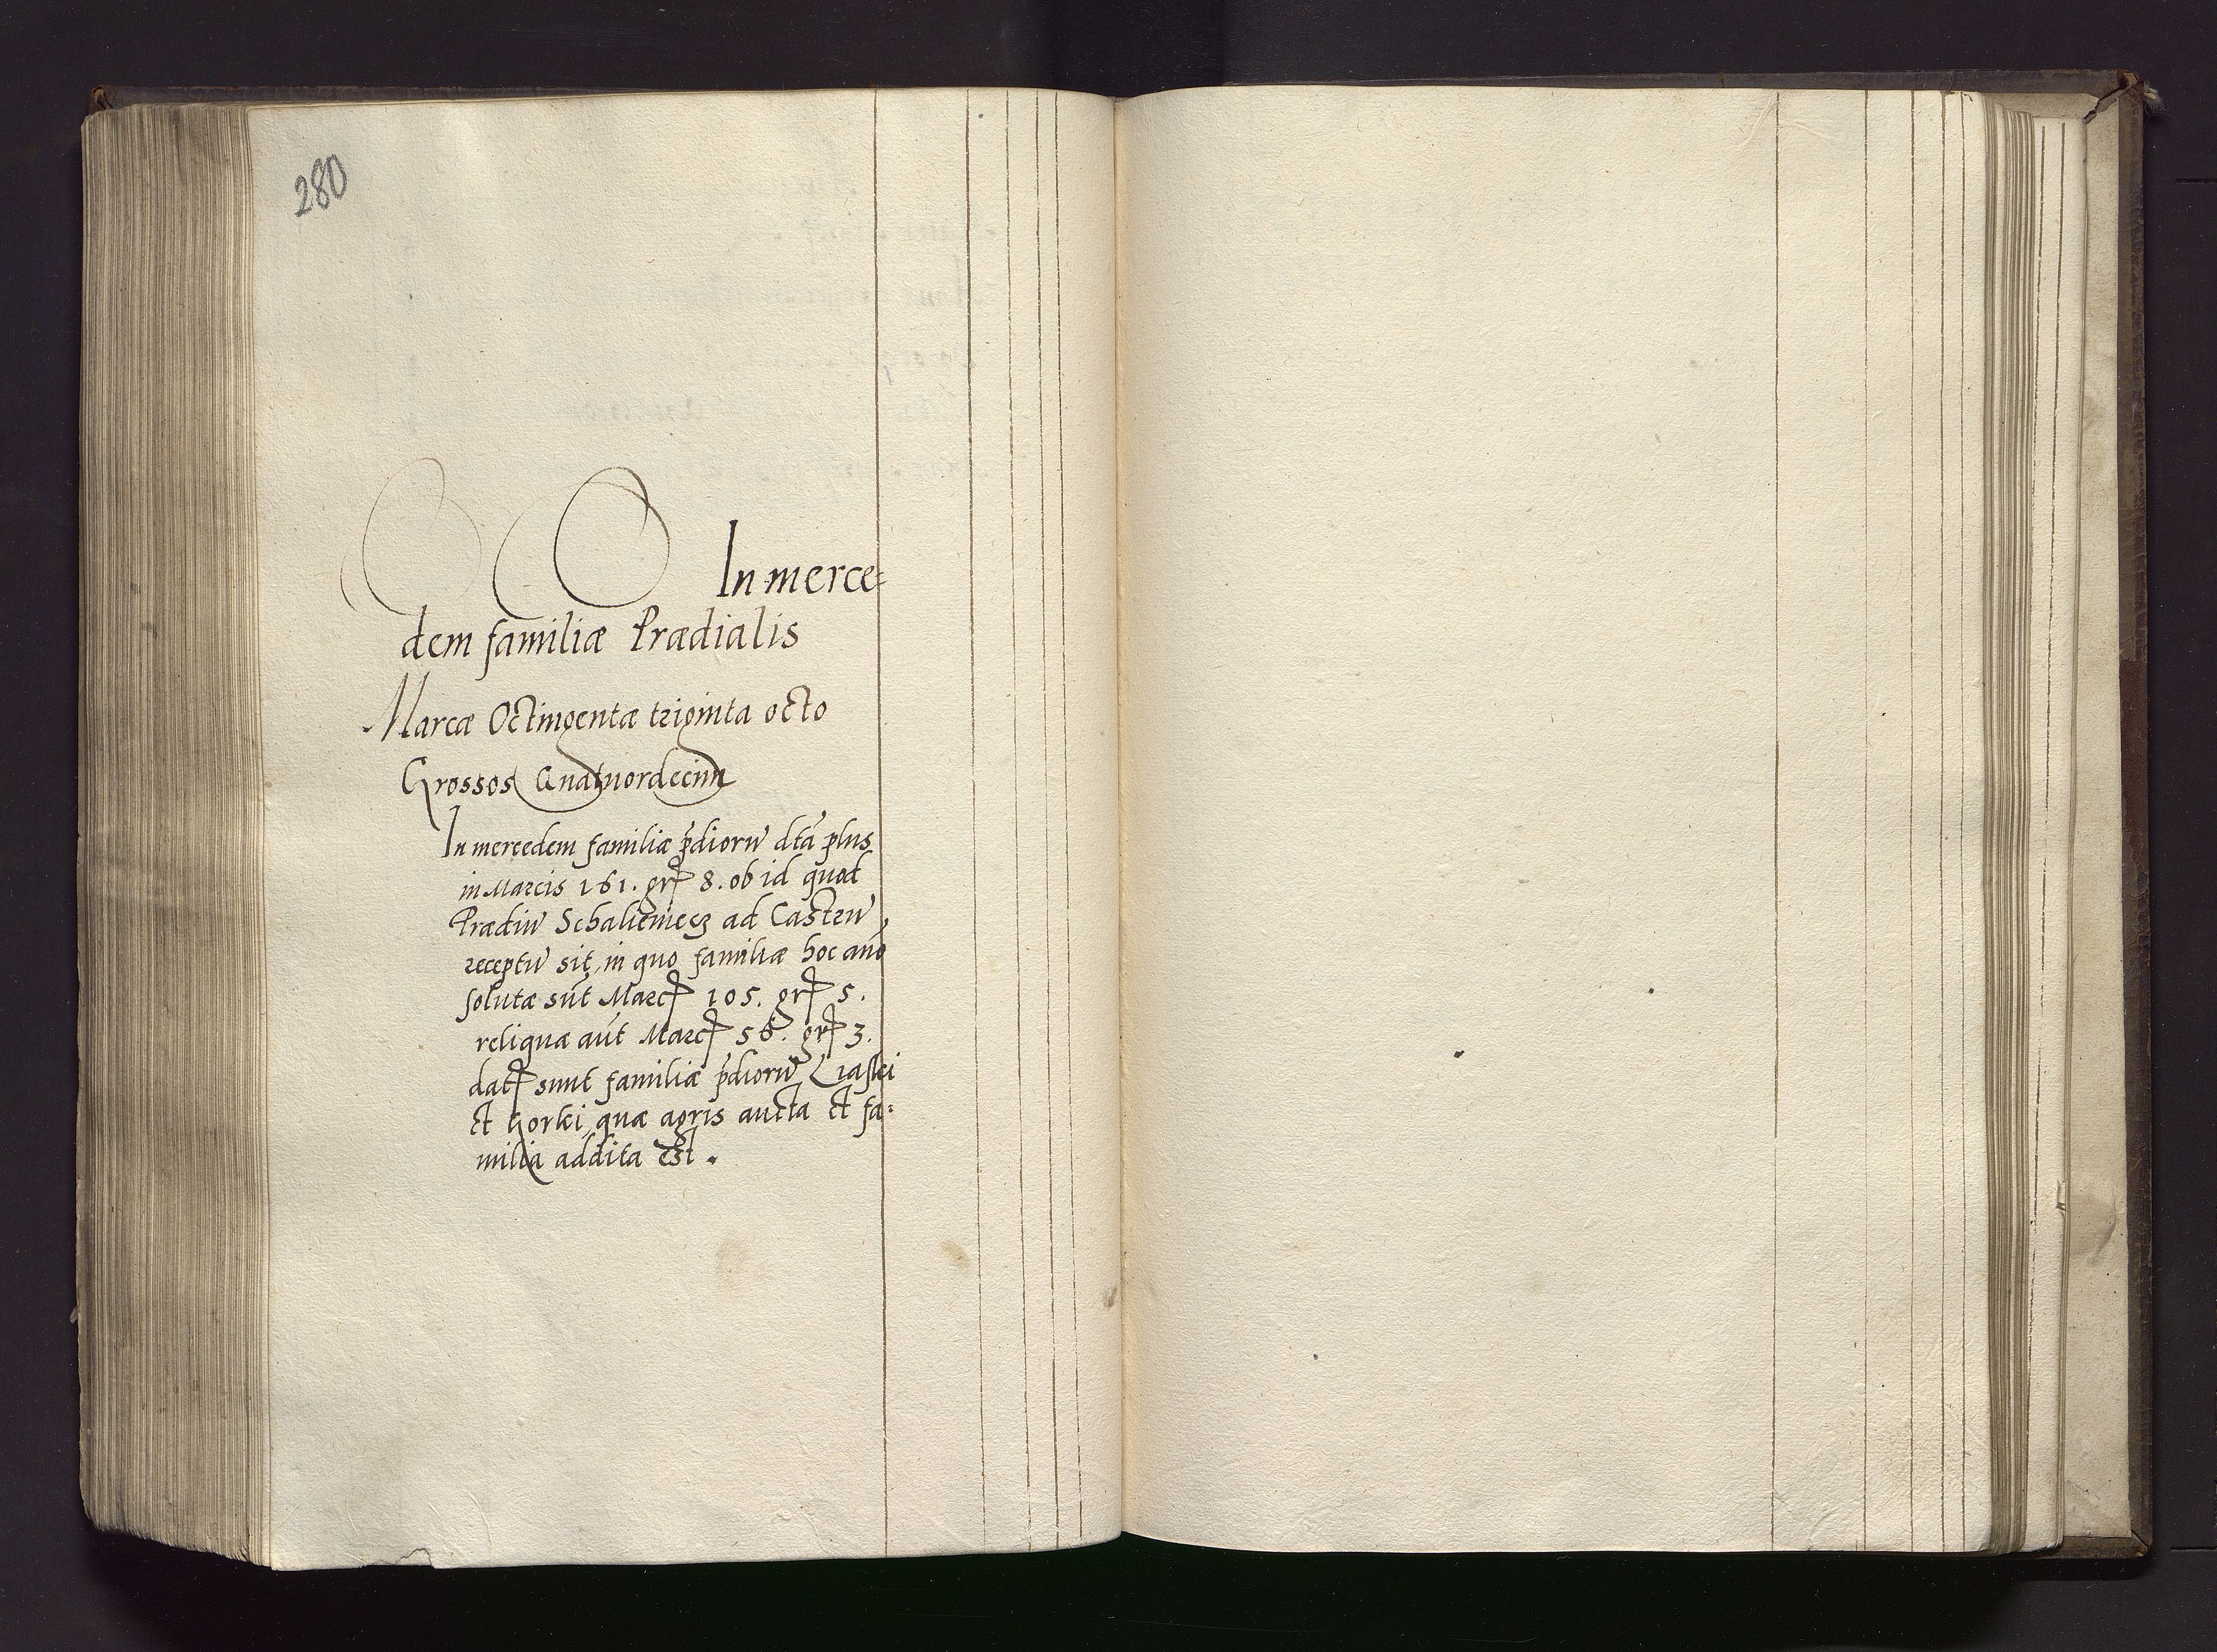 280
In merce=
dem familiæ Prædialis
Marcæ Octingentæ triginta octo
Grossos Quatuordecim
In mercedem familiæ p̄diorū dtā plus
in Marcis 161. grꝭ 8. ob id quod
Prædiū ad Castrū
receptū sit, in quo familiæ hoc año
solutæ sūt Marcꝭ 105. grꝭ 5.
reliquæ aūt Marcꝭ 56. grꝭ 3.
datꝭ sunt familiæ p̄diorū Liaski
et Gorki, quæ agris aucta et fa=
milia addita est.